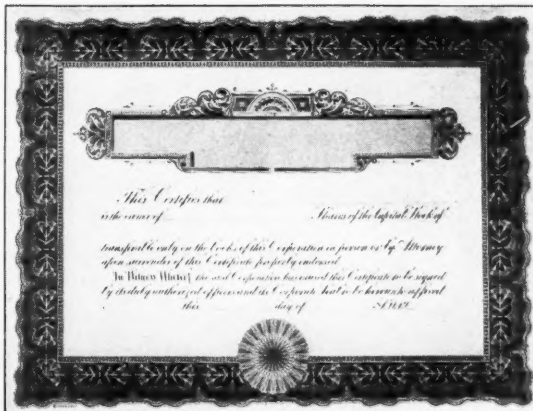 This Certifies that
is the owner of Shares of the Capital Stock of
transferable only on the Books of this Corporation in person or by Attorney
upon surrender of this Certificate properly endorsed.
In Witness Whereof, the said Corporation has caused this Certificate to be signed
by its duly authorized officers and its Corporate Seal to be hereunto affixed
this day of A.D.